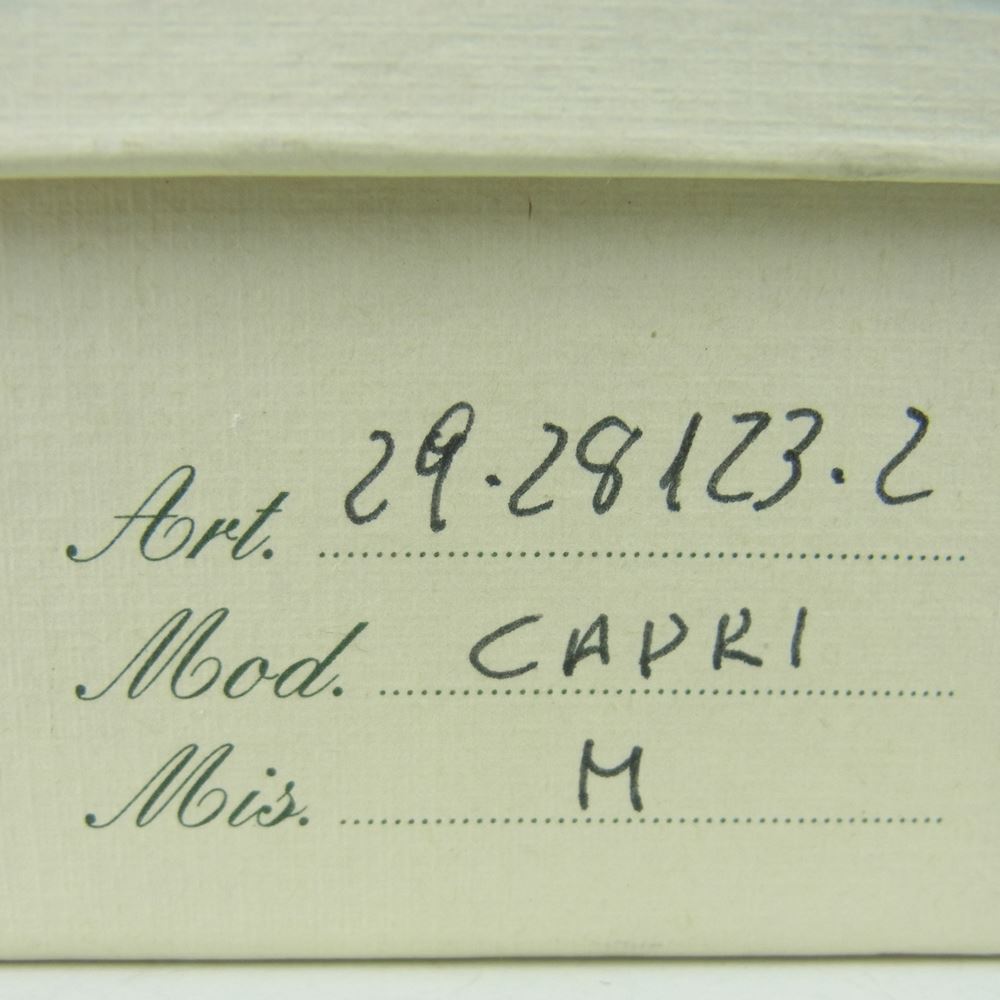 Art. 29.28123.2
Mod. CAPRI
Mis. M